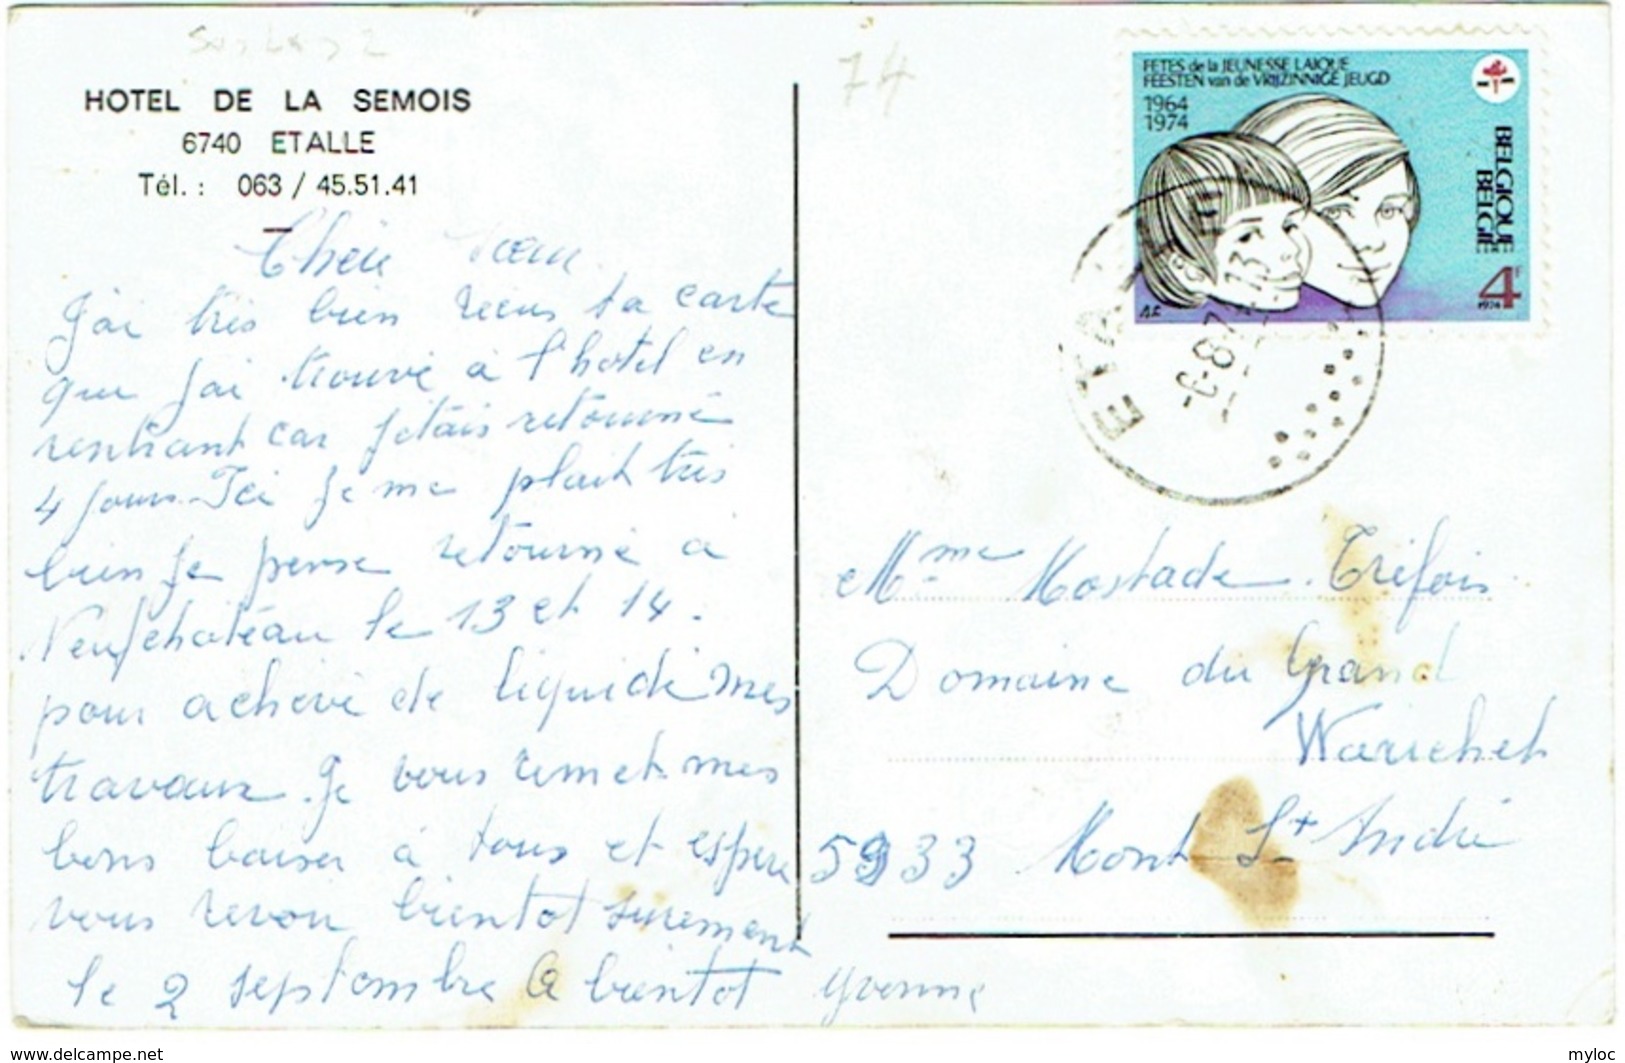 74
HOTEL DE LA SEMOIS
6740 ETALLE
Tél. : 063 / 45.51.41
Chère Sœur
J'ai très bien reçus ta carte
que j'ai trouvé à l'hotel en
rentrant car j'étais retourné
4 jours. Ici je me plait très
bien je pense retourné a
Neufchateau le 13 et 14.
pour achevé de liquidé mes
travaux. Je vous remet mes
bons baiser à tous et espère
vous revoir bientot surement
le 2 septembre A bientot Yvonne
FETES de la JEUNESSE LAIQUE
FEESTEN van de VRIJZINNIGE JEUGD
1964
1974
BELGIQUE
BELGIE
4F
1974
ETALLE
13
-9-8-7
Mme Mostade Tréfois
Domaine du Grand
Warichet
5933 Mont St André
https://www.delcampe.net
myloc